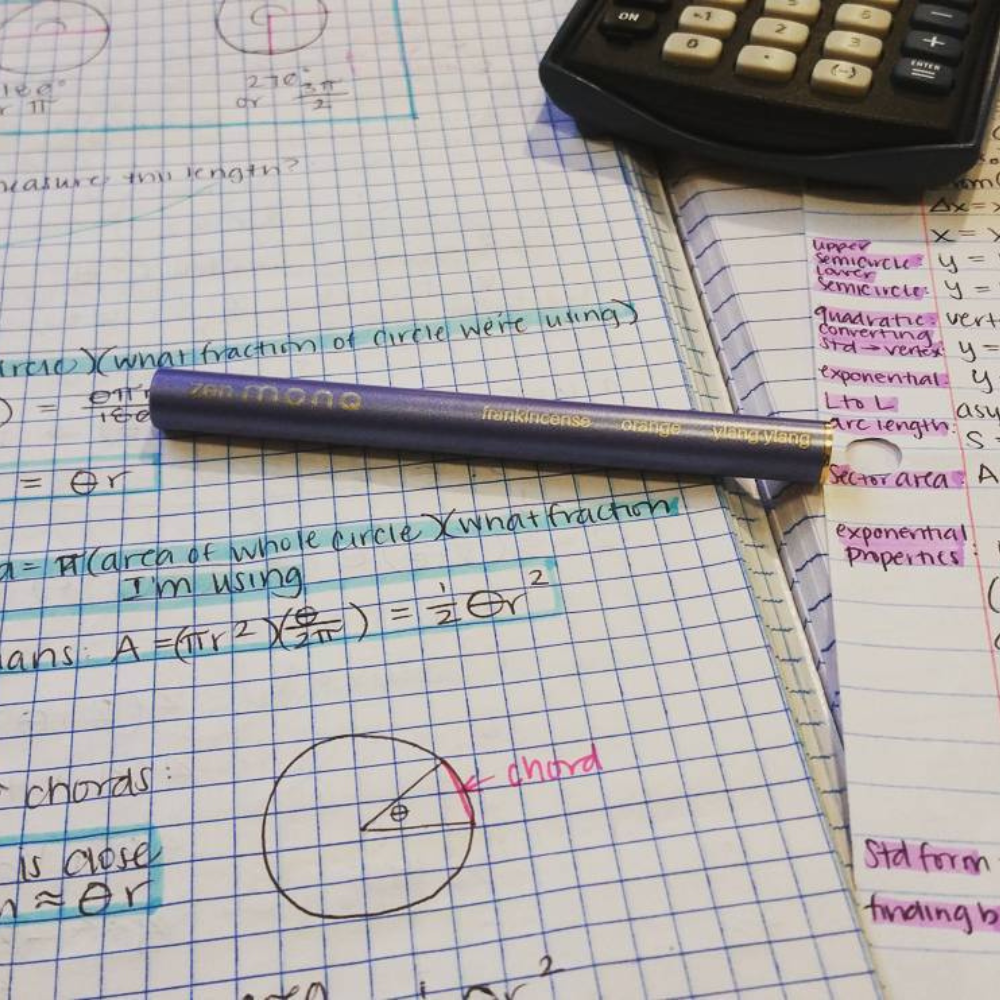 180°
or π
270°
or 3π/2
measure this length?
(what fraction of circle we're using)
=
= θr
= π(area of whole circle)(what fraction
I'm using
A =(πr²)(θ/2π) = ½θr²
chords:
is close
≈ θr
θ
← chord
zen monq frankincense orange ylang ylang
ON
1
2
3
0
.
(-)
−
+
ENTER
=
Δx =
x =
upper
semicircle: y =
lower
semicircle: y =
quadratic: vert
converting
std → vertex: y =
exponential: y
L to L asy
arc length: S =
sector area: A
exponential
properties:
Std form
finding b